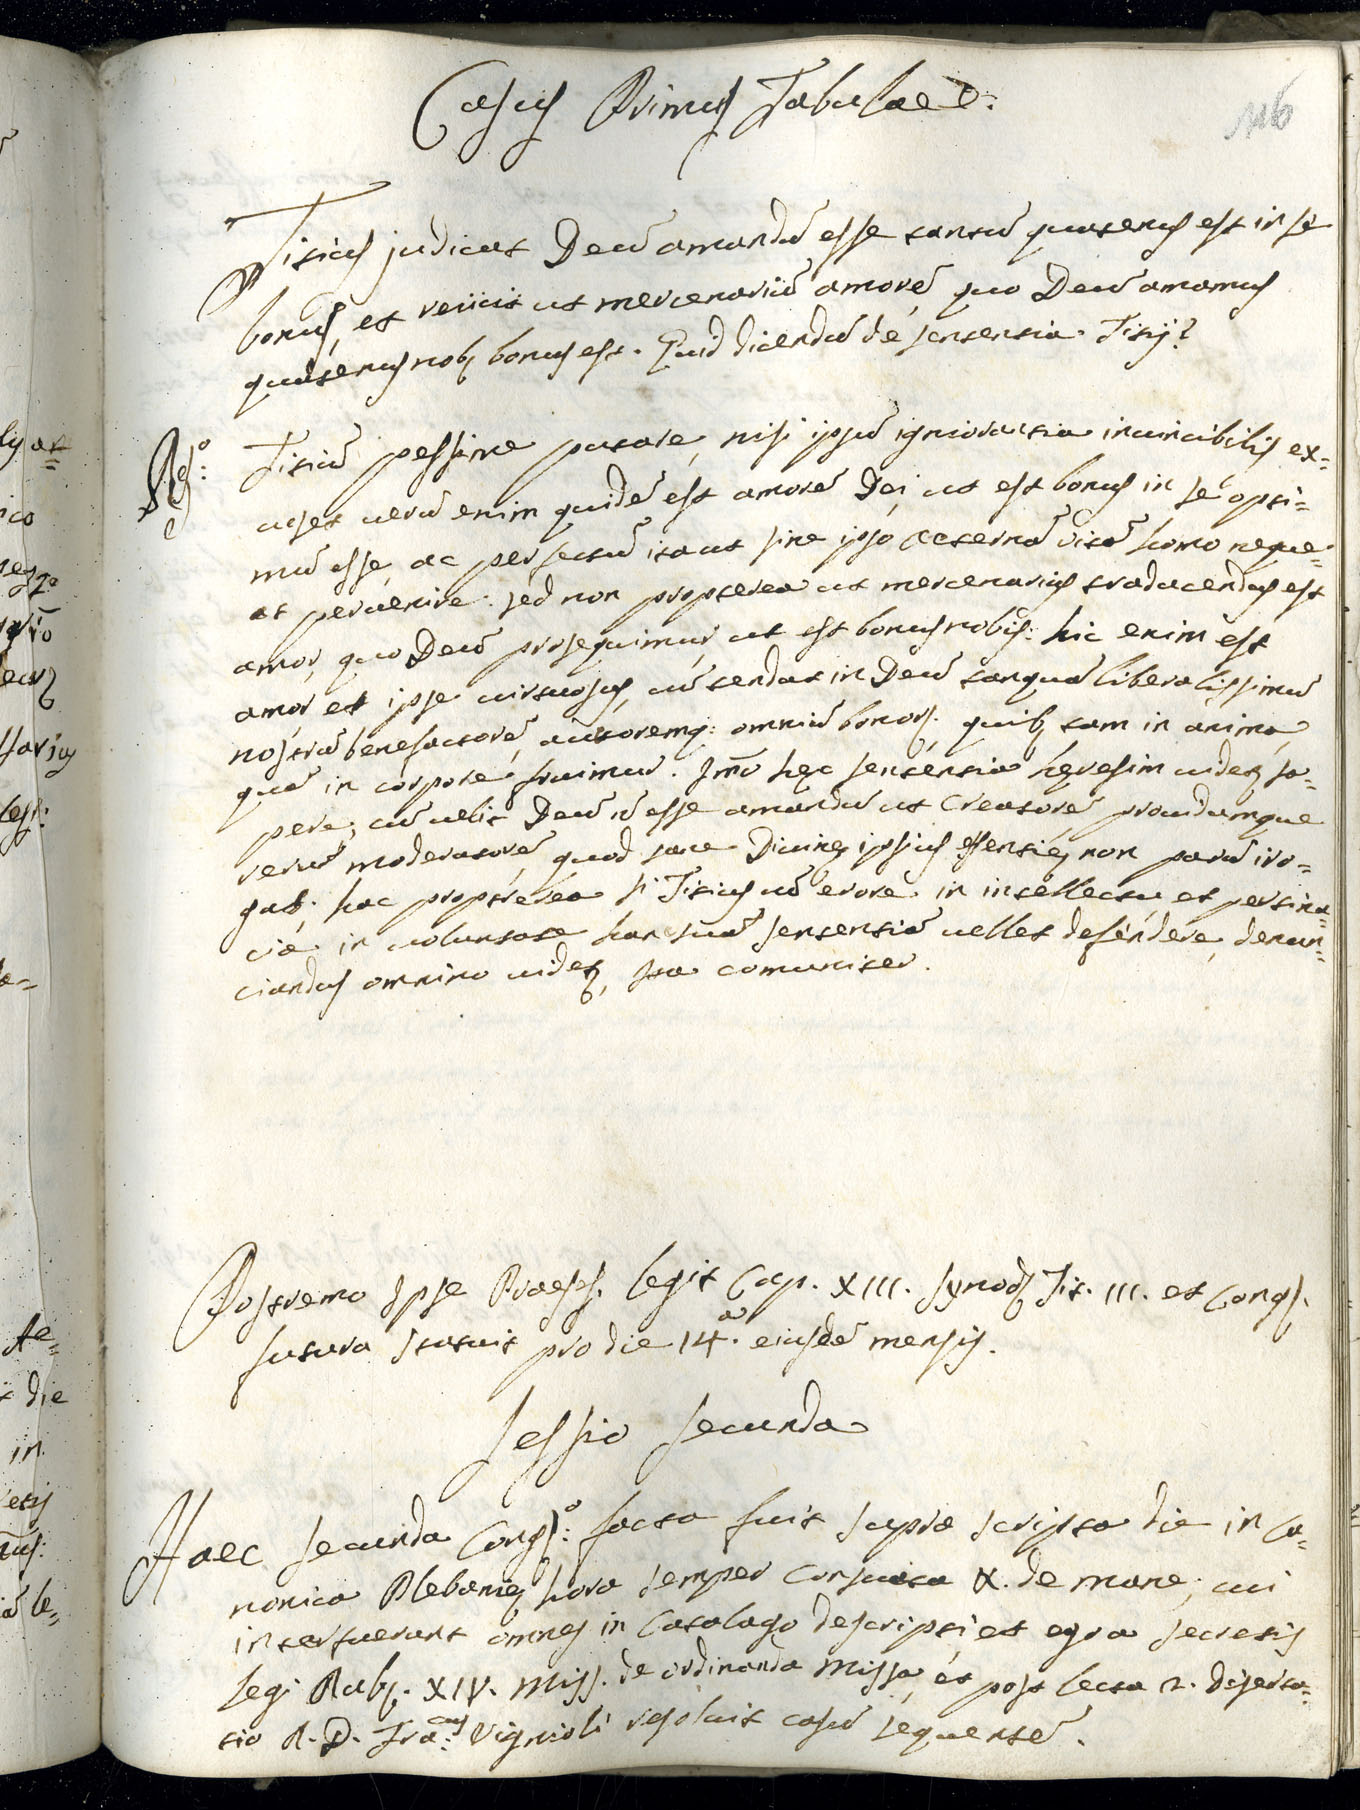 Casus Primus Tabulae
146
Titius judicat Deū amandū esse tantū quatenus est in se
bonus, et reiicit ut mercenariū amorē quo Deū amamus
quatenus nob. bonus est. Quid dicendū de sententia Titij?
Rs.º: Titiū pessime putare, nisi ipsū ignorantia invincibilis ex=
cuset verū enim quidē est amorē Dei ut est bonus in se opti=
mū esse, ac perfectū ita ut sine ipso aeternā vitā homo neque=
at pervenire. sed non propterea ut mercenarius traducendus est
amor, quo Deū prosequimur ut est bonus nobis: hic enim est
amor et ipse virtuosus, cū tendat in Deū tanquā liberalissimū
nostrū benefactorē, auctoremq: omniū bonor. quib. tam in anima
quā in corpore fruimur. Immō hęc sententia hęresim videt. sa=
pere, cū velit Deū esse amandū ut Creatorē providumque
rerū moderatorē, quod sane Divinę ipsius essentię non parū iro=
gat. hac propterea si Titius cū erore in intellectu et pertina=
cia in voluntate hanc suā sententiā vellet defendere, denun=
ciandus omnino videt., Ita comuniter.
Postremo Ipse Praeses. legit Cap. XIII. Synod. Tit. III. et Cong.
futura statuit pro die 14.ª eiusdē mensis.
Sessio Secunda
Haec secunda Congº: facta fuit supra scripta die in Ca=
nonica Plebanię hora semper consueta X. de mane; cui
interfuerunt omnes in Catalago descripti et egra secretis
legi Rub. XIV. Miss. de ordinanda Missa, et post lecta 2. Diserta=
tio R. D. Fraᶜᵘˢ: Vignioli resoluit casū sequentē.